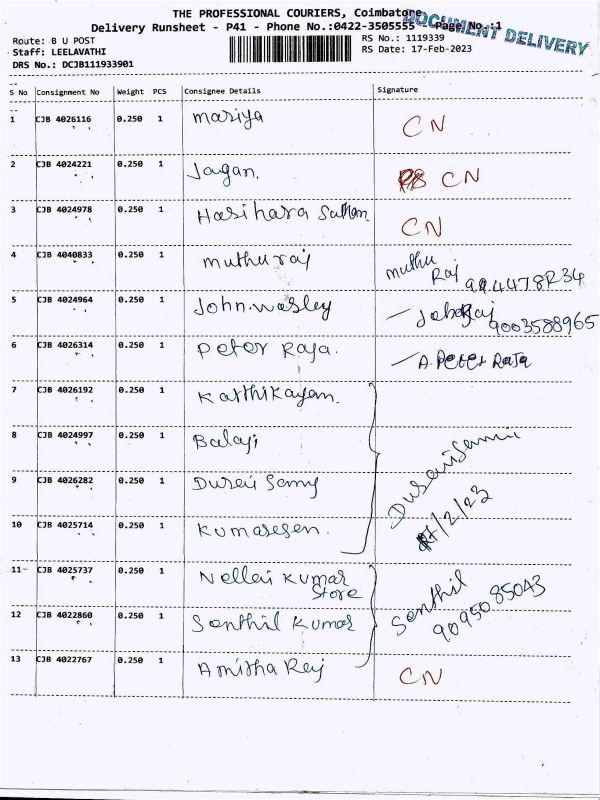 THE PROFESSIONAL COURIERS, Coimbatore
DOCUMENT DELIVERY
Delivery Runsheet - P41 - Phone No.:0422-3505555 Page No.:1
Route: B U POST
RS No.: 1119339
Staff: LEELAVATHI
RS Date: 17-Feb-2023
DRS No.: DCJB111933901
S No Consignment No Weight PCS Consignee Details Signature
1 CJB 4026116 0.250 1 Mariya CN
2 CJB 4024221 0.250 1 Jagan. CN
3 CJB 4024978 0.250 1 Harihara CN
4 CJB 4040833 0.250 1 Muthuraj Muthu
Raj
5 CJB 4024964 0.250 1 John.wesley
9003588965
6 CJB 4026314 0.250 1 Peter Raja. A. Peter Raja
7 CJB 4026192 0.250 1 Karthikayan.
8 CJB 4024997 0.250 1 Balaji
9 CJB 4026282 0.250 1 Durai Samy
17/2/23
10 CJB 4025714 0.250 1 Kumaresen.
11 CJB 4025737 0.250 1 Nellai Kumar
Store
Senthil
9095085043
12 CJB 4022860 0.250 1 Senthil Kumar
13 CJB 4022767 0.250 1 Amitha Raj CN